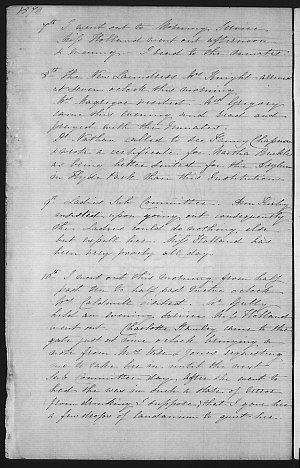 7th I went out to Morning Service
Miss Holland went out afternoon
& evening. I read to the inmates
8th The New Laundress Mrs Knight arrived
at seven o'clock this morning
Mrs visited. Mr Gregory
came this evening and read and
prayed with the Inmates.
Dr called to see Fanny Chapman
& wrote a certificate for Martha
as being better suited for the Asylum
in Hyde Park than this Institution.
9th Ladies Sub Committee. Ann
insisted upon going out consequently
the Ladies could do nothing else
but expell her. Miss Holland has
been very poorly all day.
10th I went out this morning from half
past ten to half past twelve o'clock
Mrs Caldwell visited. Mr
held an evening service Miss Holland
went out. Charlotte came to the
gate just at nine o'clock bringing a
note from Mrs requesting
me to take her in until the next
Sub Committee day. After she went to
bed she was in such a state of
from drinking I suppose, that I gave her
a few drops of laudanum to quiet her.